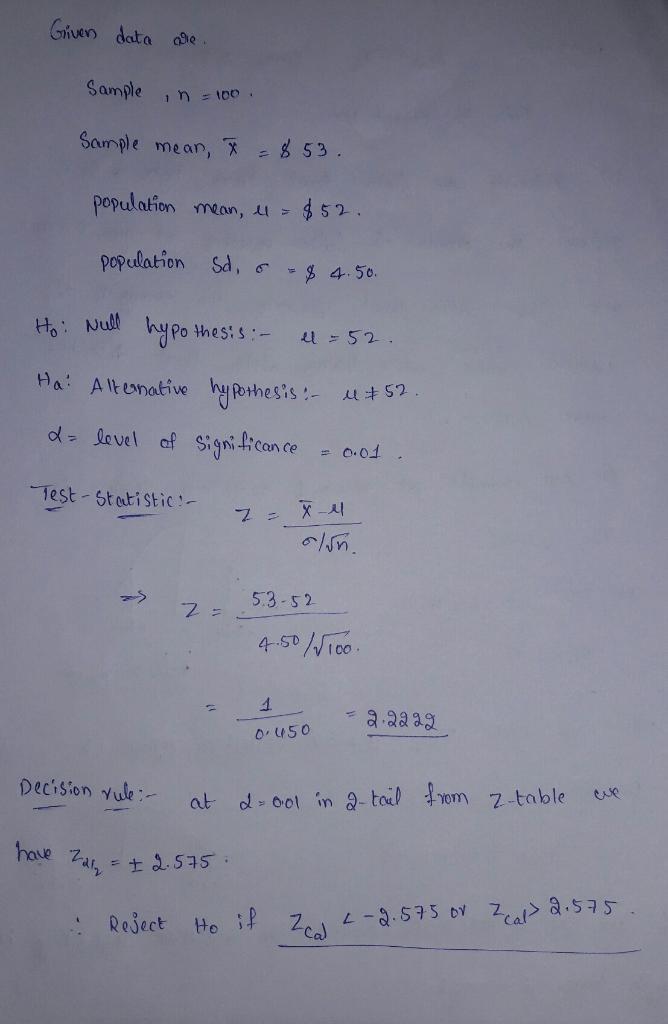 Given data are.
Sample , n = 100.
Sample mean, x̄ = $ 53.
population mean, μ = $52.
population sd, σ = $ 4.50.
H₀: Null hypothesis:- μ = 52.
Ha: Alternative hypothesis:- μ ≠ 52.
α = level of significance = 0.01.
Test-Statistic:- Z = x̄-μ / σ/√n.
⇒ Z = 53-52 / 4.50/√100.
= 1 / 0.450 = 2.2222
Decision rule:- at α = 0.01 in 2-tail from Z-table we
have Zα/2 = ± 2.575.
∴ Reject H₀ if Zcal < -2.575 or Zcal > 2.575.